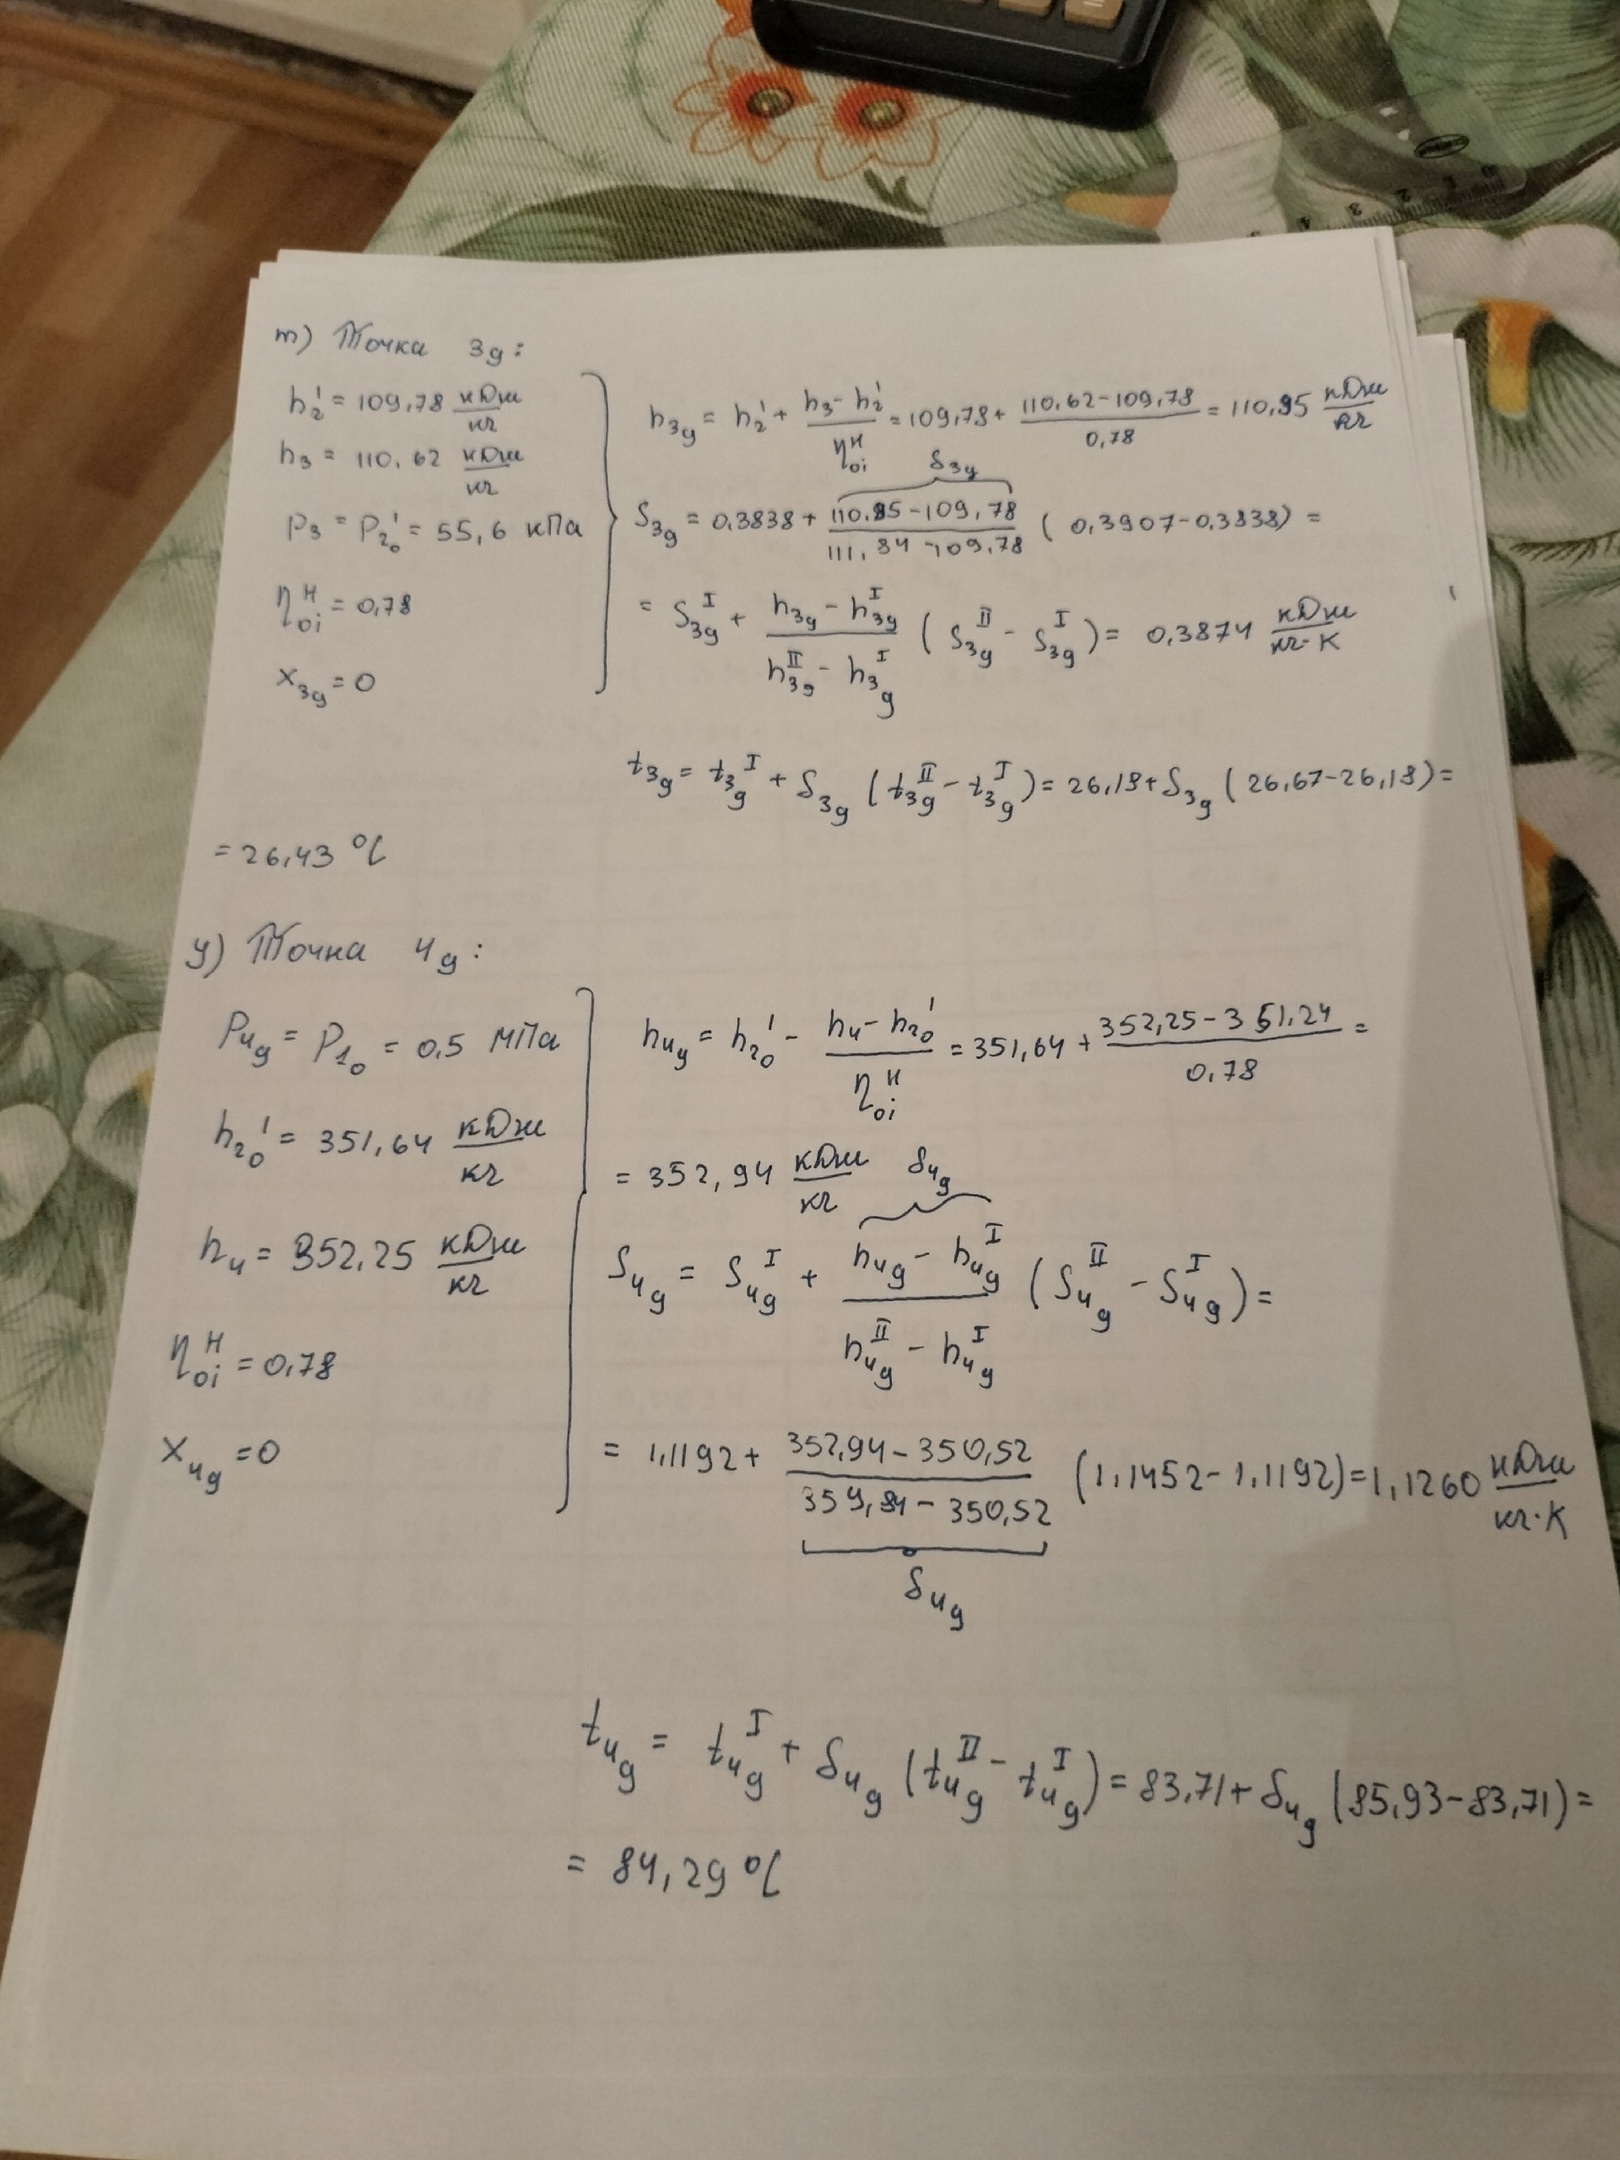 т) Точка 3g:
h₂' = 109,78 кДж/кг
h₃ = 110,62 кДж/кг
P₃ = P₂₀' = 55,6 кПа
η_oi^H = 0,78
x_3g = 0
h_3g = h₂' + (h₃ - h₂')/η_oi^H = 109,78 + (110,62-109,78)/0,78 = 110,85 кДж/кг
δ_3g
S_3g = 0,3838 + (110,85-109,78)/(111,84-109,78) (0,3907-0,3838) =
= S_3g^I + (h_3g - h_3g^I)/(h_3g^II - h_3g^I) (S_3g^II - S_3g^I) = 0,3874 кДж/кг·К
t_3g = t_3g^I + δ_3g (t_3g^II - t_3g^I) = 26,18 + δ_3g (26,67-26,18) =
= 26,43 °C
у) Точка 4g:
P_4g = P_1₀ = 0,5 МПа
h₂₀' = 351,64 кДж/кг
h₄ = 352,25 кДж/кг
η_oi^H = 0,78
x_4g = 0
h_4g = h₂₀' - (h₄ - h₂₀')/η_oi^H = 351,64 + (352,25-351,24)/0,78 =
= 352,94 кДж/кг
δ_4g
S_4g = S_4g^I + (h_4g - h_4g^I)/(h_4g^II - h_4g^I) (S_4g^II - S_4g^I) =
= 1,1192 + (352,94-350,52)/(359,84-350,52) (1,1452-1,1192) = 1,1260 кДж/кг·К
δ_4g
t_4g = t_4g^I + δ_4g (t_4g^II - t_4g^I) = 83,71 + δ_4g (85,93-83,71) =
= 84,29 °C